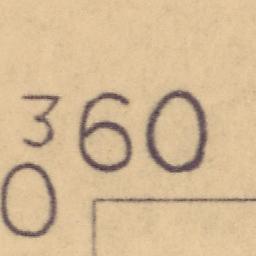 360
0